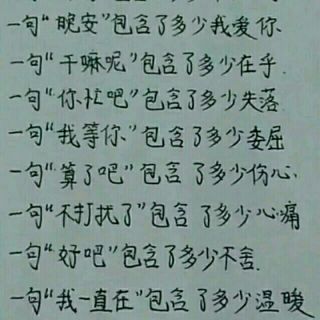 一句“晚安”包含了多少我爱你
一句“干嘛呢”包含了多少在乎.
一句“你忙吧”包含了多少失落.
一句“我等你”包含了多少委屈
一句“算了吧”包含了多少伤心.
一句“不打扰了”包含了多少心痛
一句“好吧”包含了多少不舍.
一句“我一直在”包含了多少温暖